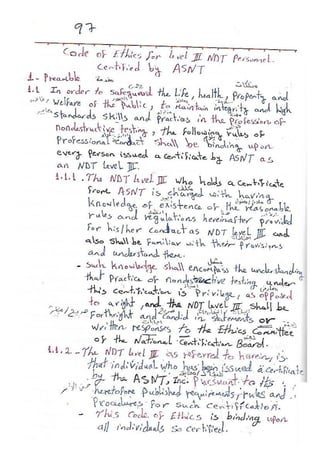 97
Code of Ethics for level III NDT Personnel
Certified by ASNT
1- Preamble
1.1 In order to safeguard the Life, health, Property and
Welfare of the Public, to Maintain integrity and high
standards skills and practices in the Profession of
nondestructive testing, the following rules of
Professional Conduct shall be binding upon
every person issued a certificate by ASNT as
an NDT level III.
1.1.1. The NDT level III who holds a certificate
from ASNT is charged with having
Knowledge of existence of the reasonable
rules and regulations hereinafter provided
for his/her conduct as NDT level III and
also shall be Familiar with their Provisions
and understand them.
- Such Knowledge shall encompass the understanding
that Practice of nondestructive testing under
this certification is Privilege, as opposed
to a right, and the NDT level III shall be
Forthright and Candid in statements or
written responses to the Ethics Committee
of the National Certification Board.
1.1.2 - The NDT level III as referred to herein, is
that individual who has been issued a certificate
by the ASNT, Inc. Pursuant to its
heretofore published requirements, rules and
Procedures for such certification.
- This Code of Ethics is binding upon
all individuals so certified.